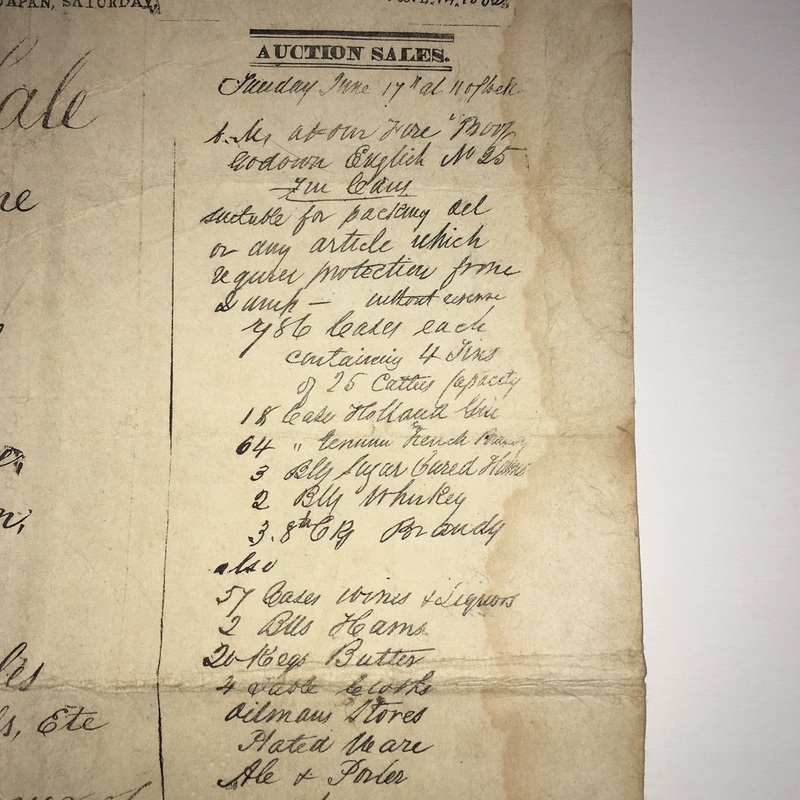 JAPAN, SATURDAY,
AUCTION SALES.
Tuesday June 17th at 11 o'clock
at our Fire Proof
Godown English No 25
suitable for packing
or any article which
requires protection from
Damp — without reserve
786 Cases each
containing 4 Tins
of 25 Catties Capacity
18 Case Holland Gin
64 " Genuine French Brandy
3 Blls Sugar Cured Hams
2 Blls Whiskey
3. 8th Brandy
also
57 Cases Wines & Liquors
2 Blls Hams
20 Kegs Butter
4 Table Cloths
Oilmans Stores
Plated Ware
Ale & Porter
ale
ne
n,
les
s, Etc
of